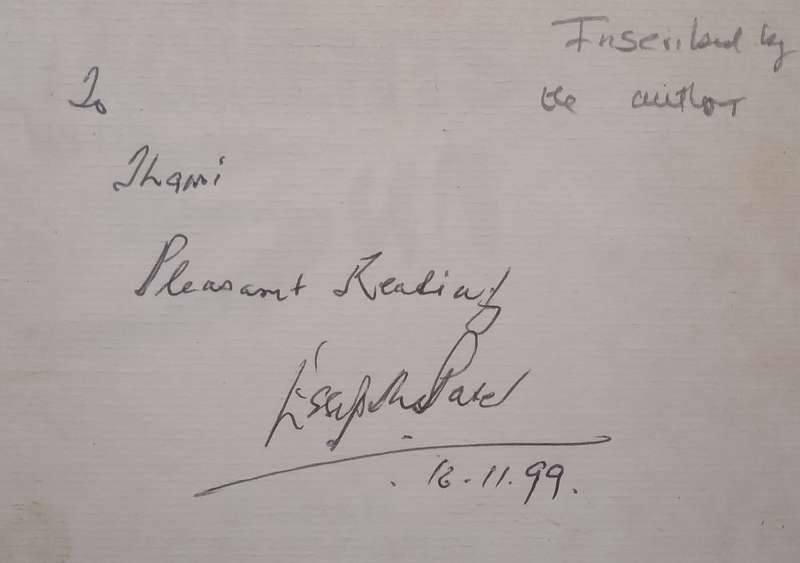 Inscribed by
the author
To
Thami
Pleasant Reading
Essop Patel
16.11.99.